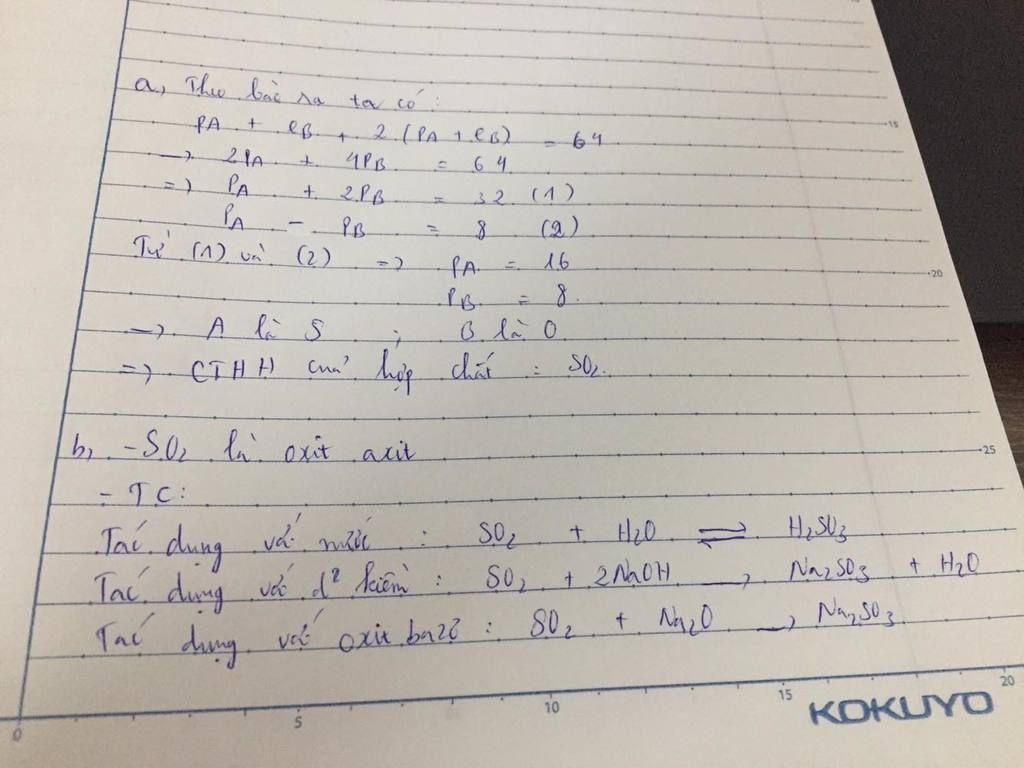 a, Theo bài ra ta có:
PA + eB + 2 (PA + eB) = 64
→ 2PA + 4PB = 64
=> PA + 2PB = 32 (1)
PA - PB = 8 (2)
Từ (1) và (2) => PA = 16
PB = 8.
→ A là S ; B là O
=> CTHH của hợp chất : SO2.
b, - SO2 là oxit axit
- TC:
Tác dụng với nước : SO2 + H2O ⇌ H2SO3
Tác dụng với d² kiềm : SO2 + 2NaOH → Na2SO3 + H2O
Tác dụng với oxit bazơ : SO2 + Na2O → Na2SO3
15
20
25
0 5 10 15 20
KOKUYO